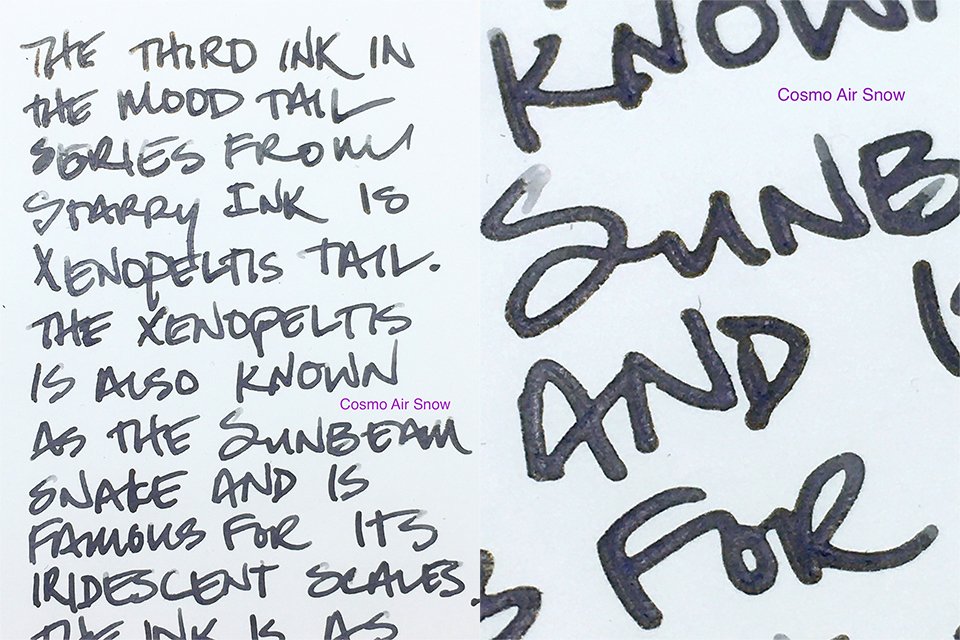 THE THIRD INK IN
THE MOOD TAIL
SERIES FROM
STARRY INK IS
XENOPELTIS TAIL.
THE XENOPELTIS
IS ALSO KNOWN
Cosmo Air Snow
AS THE SUNBEAM
SNAKE AND IS
FAMOUS FOR ITS
IRIDESCENT SCALES.
THE INK IS AS
KNOWN
Cosmo Air Snow
SUNB
AND
FOR